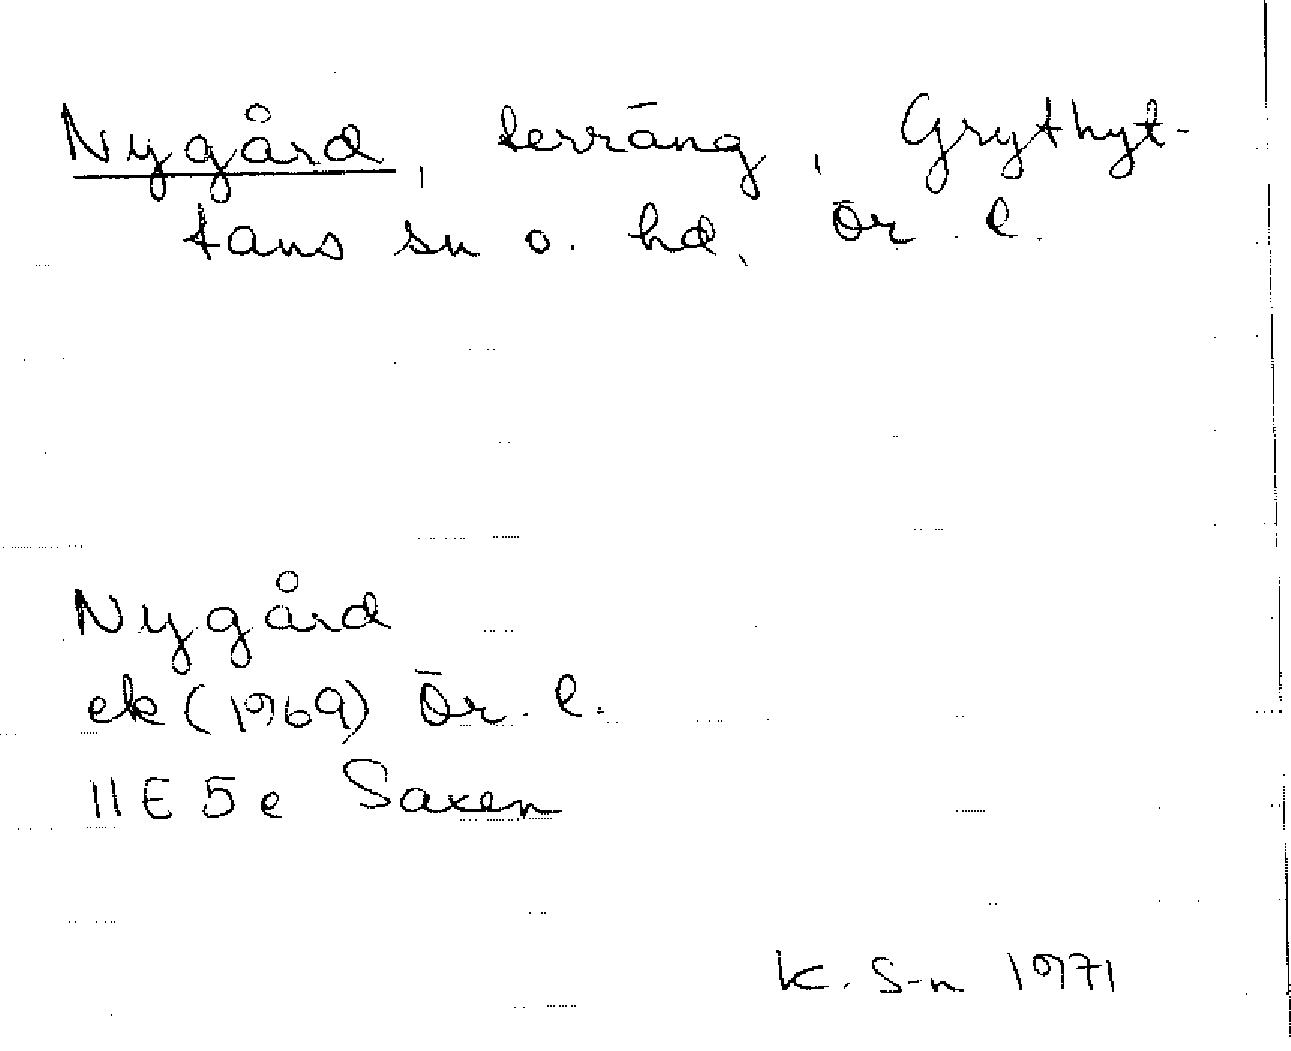 Nygård, terräng, Grythyt-
tans sn o. hd, Ör. l.
Nygård
ek (1969) Ör. l.
11E 5e Saxen
K. S-n 1971